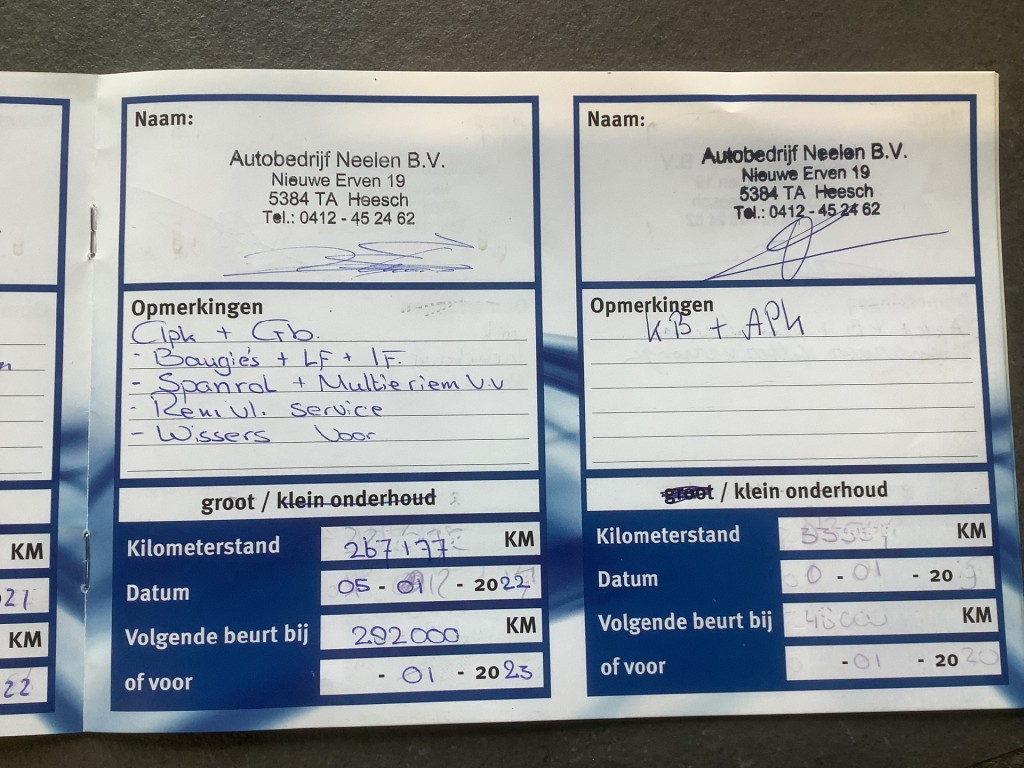 KM
21
KM
22
Naam:
Autobedrijf Neelen B.V.
Nieuwe Erven 19
5384 TA Heesch
Tel.: 0412 - 45 24 62
Opmerkingen
Apk + Gb.
- Bougie's + LF + IF.
- Spanrol + Multieriem V.V
- Remvl. service
- Wissers Voor
groot / klein onderhoud
Kilometerstand 267177 KM
Datum 05 - 01 - 2022
Volgende beurt bij 292000 KM
of voor - 01 - 2023
Naam:
Autobedrijf Neelen B.V.
Nieuwe Erven 19
5384 TA Heesch
Tel.: 0412 - 45 24 62
Opmerkingen
KB + APK
groot / klein onderhoud
Kilometerstand KM
Datum - 01 - 20
Volgende beurt bij KM
of voor - 01 - 2020